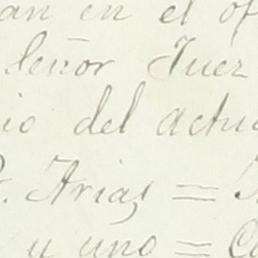 an en el of
Señor Juez
io del actua
. Arias =
y uno = Co